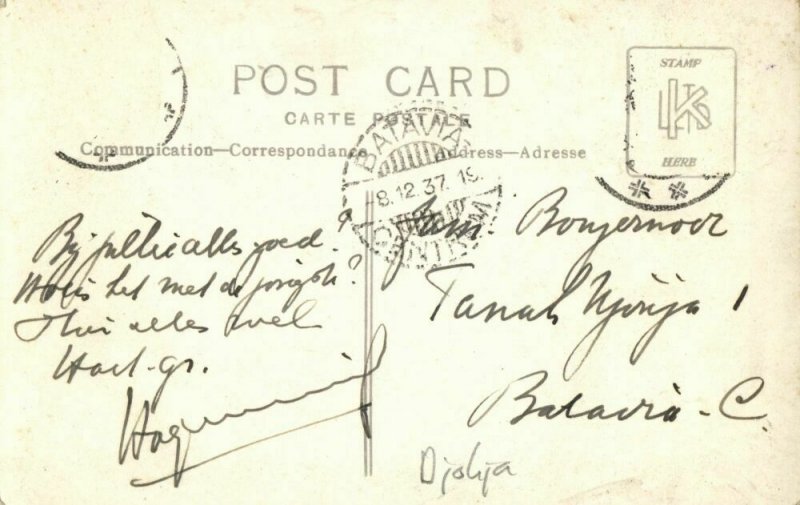 POST CARD
CARTE POSTALE
Communication—Correspondance
Address—Adresse
STAMP
LKTG
HERE
BATAVIA
8.12.37.19
CENTRUM
Bij jullie alles goed?
Hoe is het met de ?
Thuis alles wel
Hart. gr.
Fam.
Tanah Njonja 1
Batavia - C.
Djokja